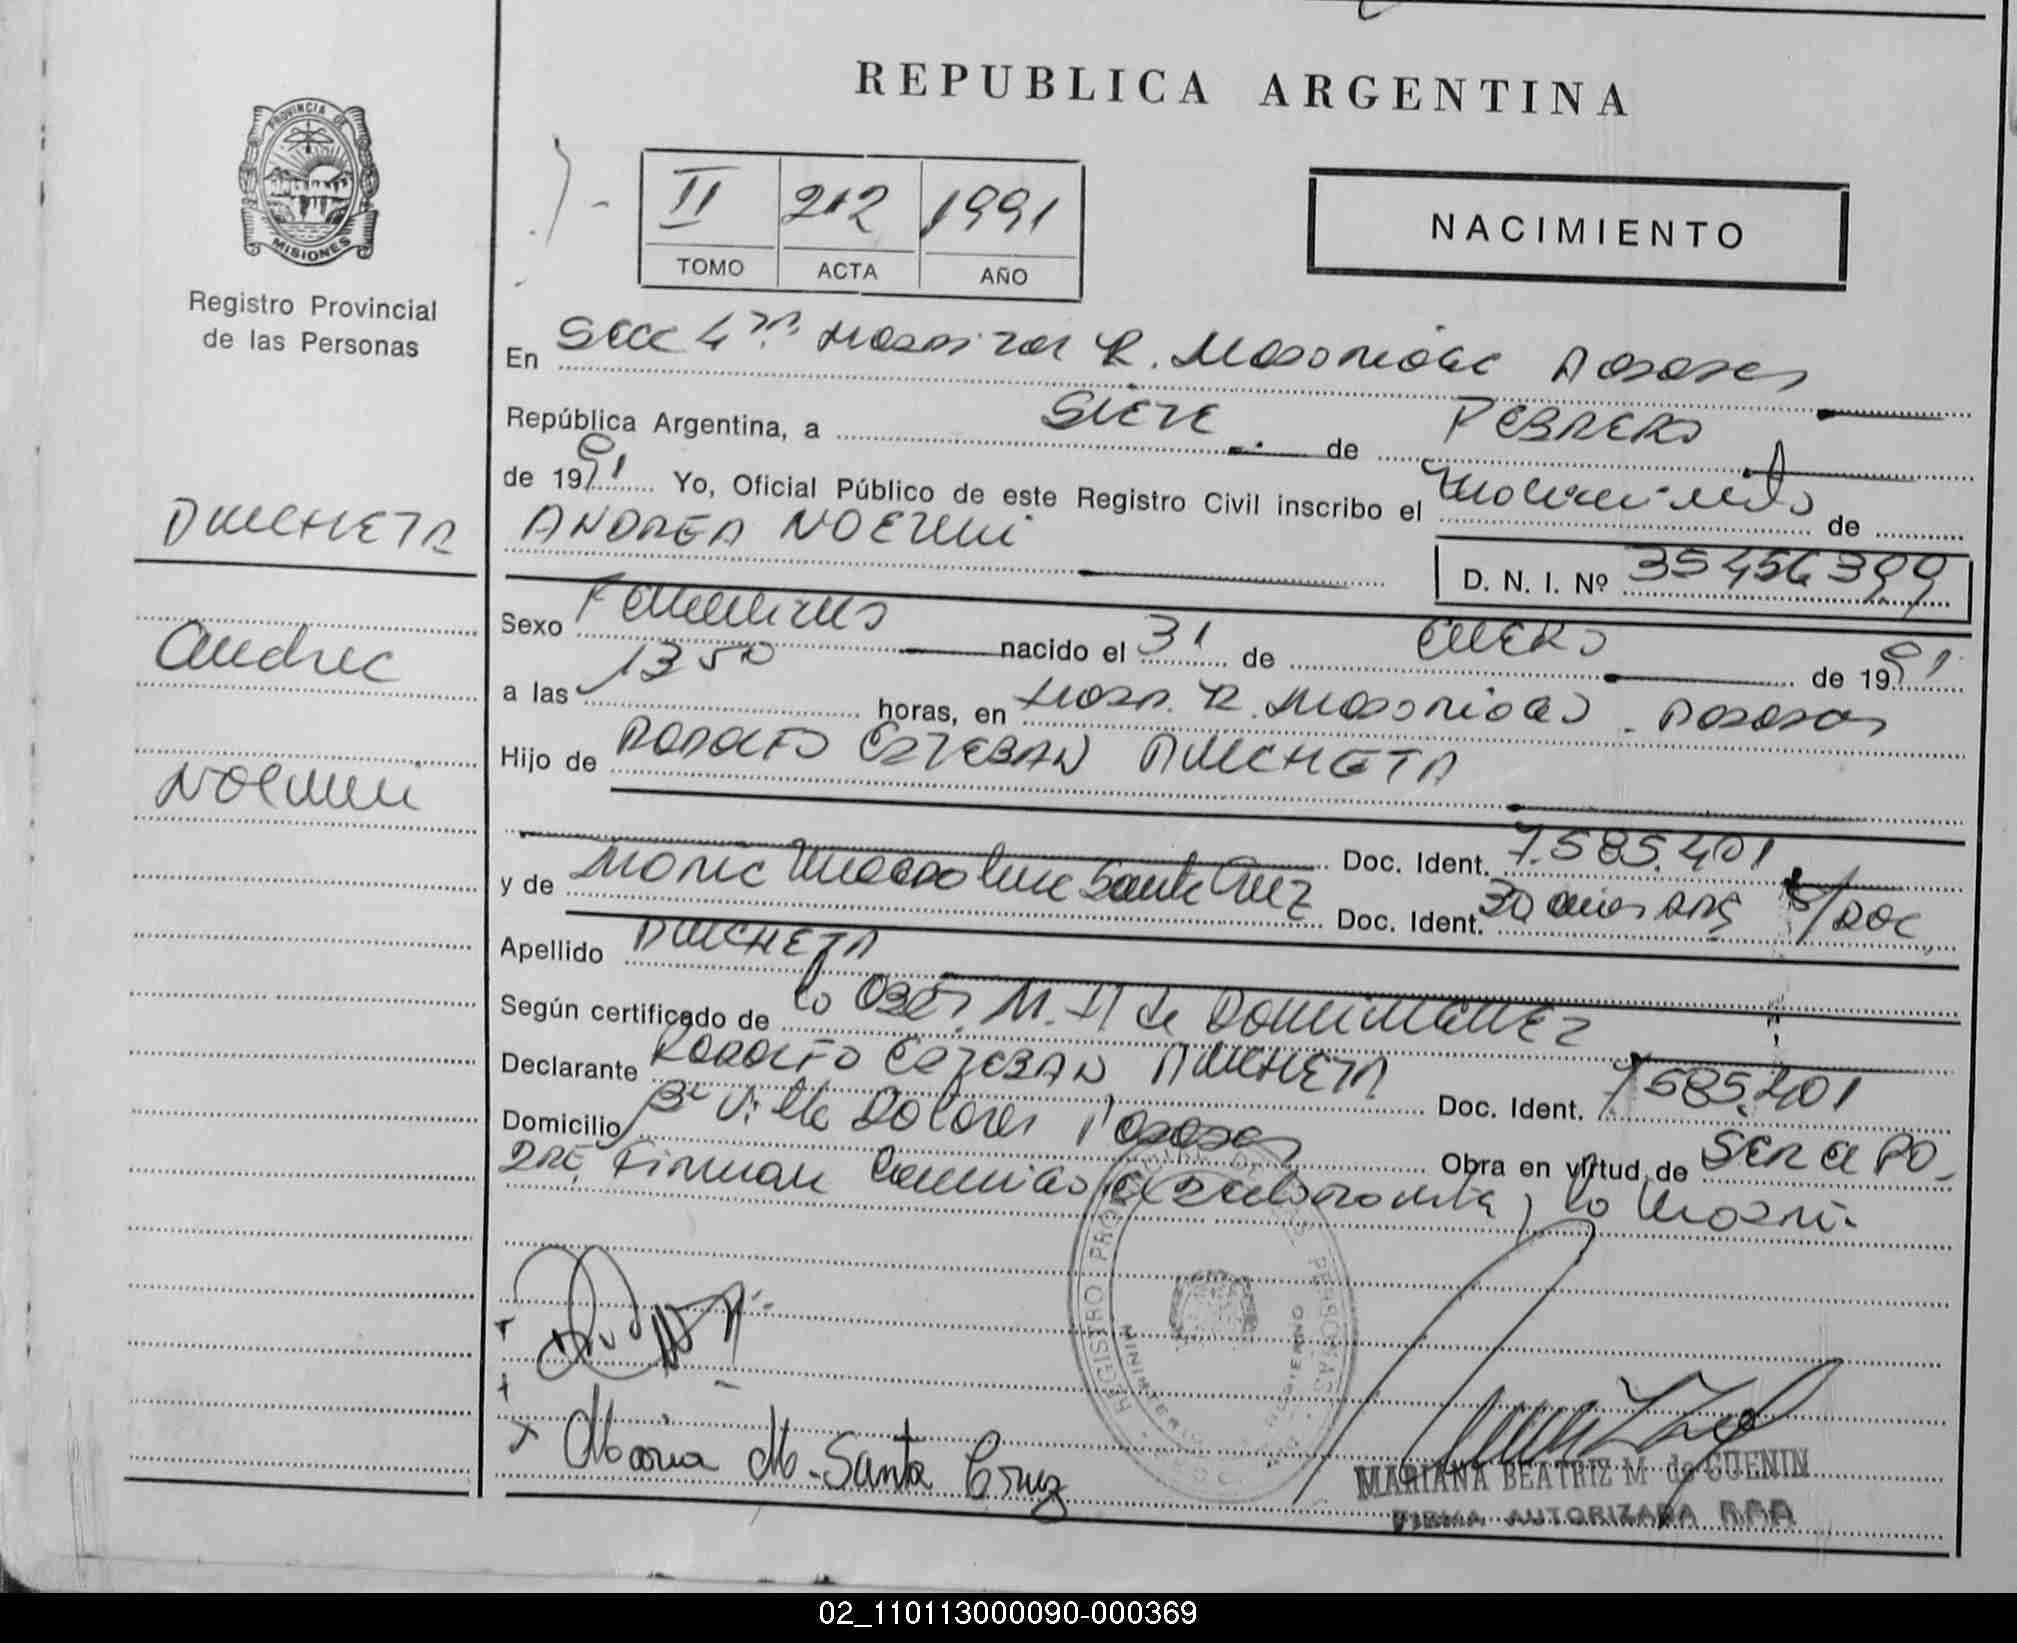 REPUBLICA ARGENTINA
PROVINCIA DE
MISIONES
Registro Provincial
de las Personas
II 212 1991
TOMO ACTA AÑO
NACIMIENTO
En Secc 4ta. Hospital R. Madariaga Posadas
República Argentina, a SIETE de FEBRERO
de 1991 Yo, Oficial Público de este Registro Civil inscribo el Nacimiento de
ANDREA NOEMI
D. N. I. Nº 35456399
Sexo Femenino nacido el 31 de ENERO de 1991
a las 13 50 horas, en Hosp. R. Madariaga Posadas
Hijo de RODOLFO ESTEBAN
Doc. Ident. 7.585.401
y de Maria Magdalena Santa Cruz Doc. Ident. 30 años ARG S/DOC
Apellido
Según certificado de la Obst. M. de
Declarante RODOLFO ESTEBAN Doc. Ident. 7585.401
Domicilio Bº Villa Dolores Posadas Obra en virtud de SER el PA-
DRE, Firman la madre
Andrea
Noemi
Maria M. Santa Cruz
MARIANA BEATRIZ M. de GUENIN
FIRMA AUTORIZADA
02_110113000090-000369